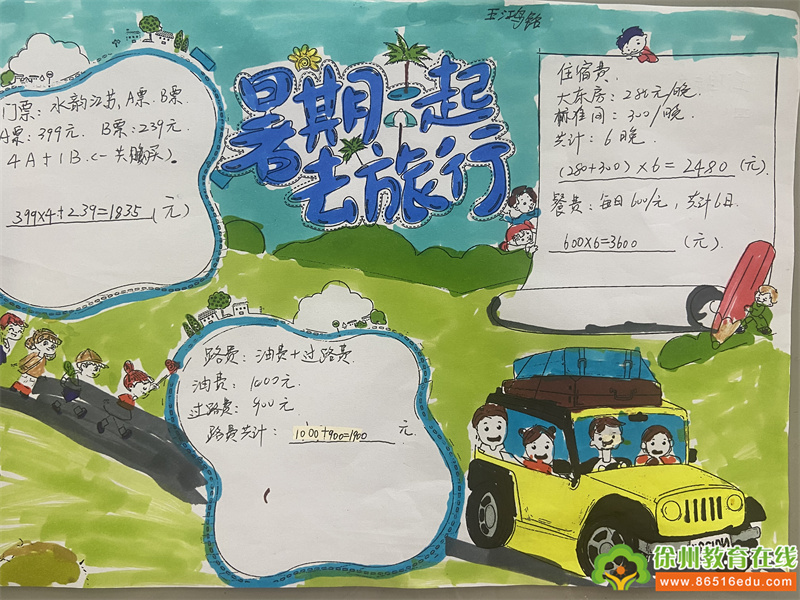 王鸿铭
暑期一起
去旅行
门票：水韵江苏，A票，B票.
A票：399元 B票：239元.
4A+1B（一共购买）。
399×4+239=1835（元）
住宿费.
大床房：280元/晚.
标准间：300/晚.
共计：6晚.
(280+300)×6=2480（元）
餐费：每日600/元，共计6日.
600×6=3600（元）
路费：油费+过路费
油费：1000元.
过路费：900元
路费共计：1000+900=1900元.
徐州教育在线
www.86516edu.com